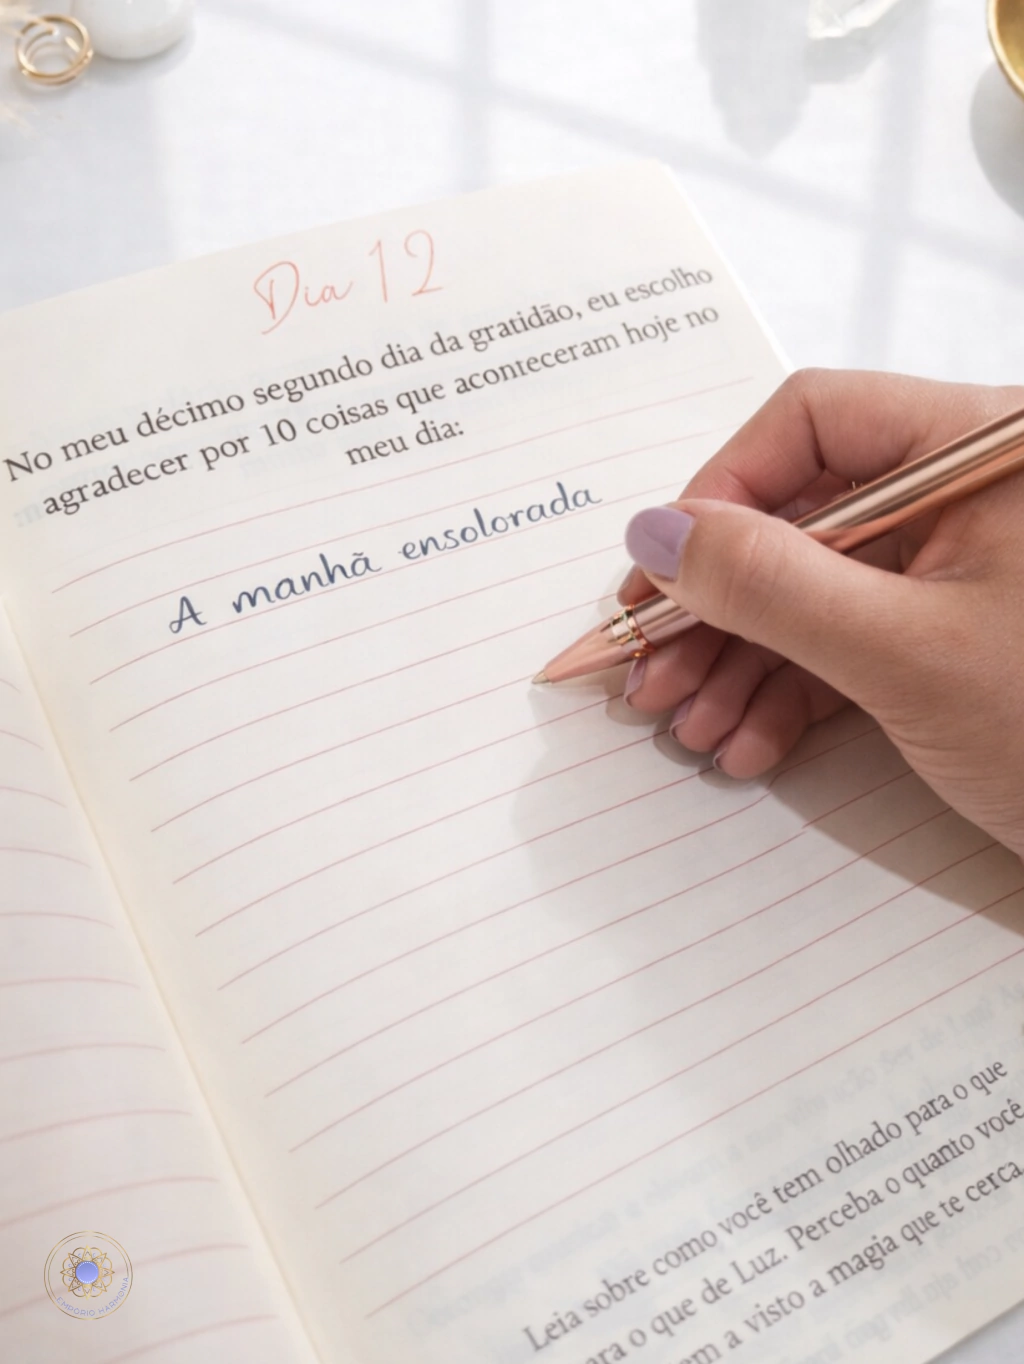 Dia 12
No meu décimo segundo dia da gratidão, eu escolho
agradecer por 10 coisas que aconteceram hoje no
meu dia:
A manhã ensolorada
Leia sobre como você tem olhado para o que
ara o que de Luz. Perceba o quanto você
em a visto a magia que te cerca
EMPORIO HARMONIA